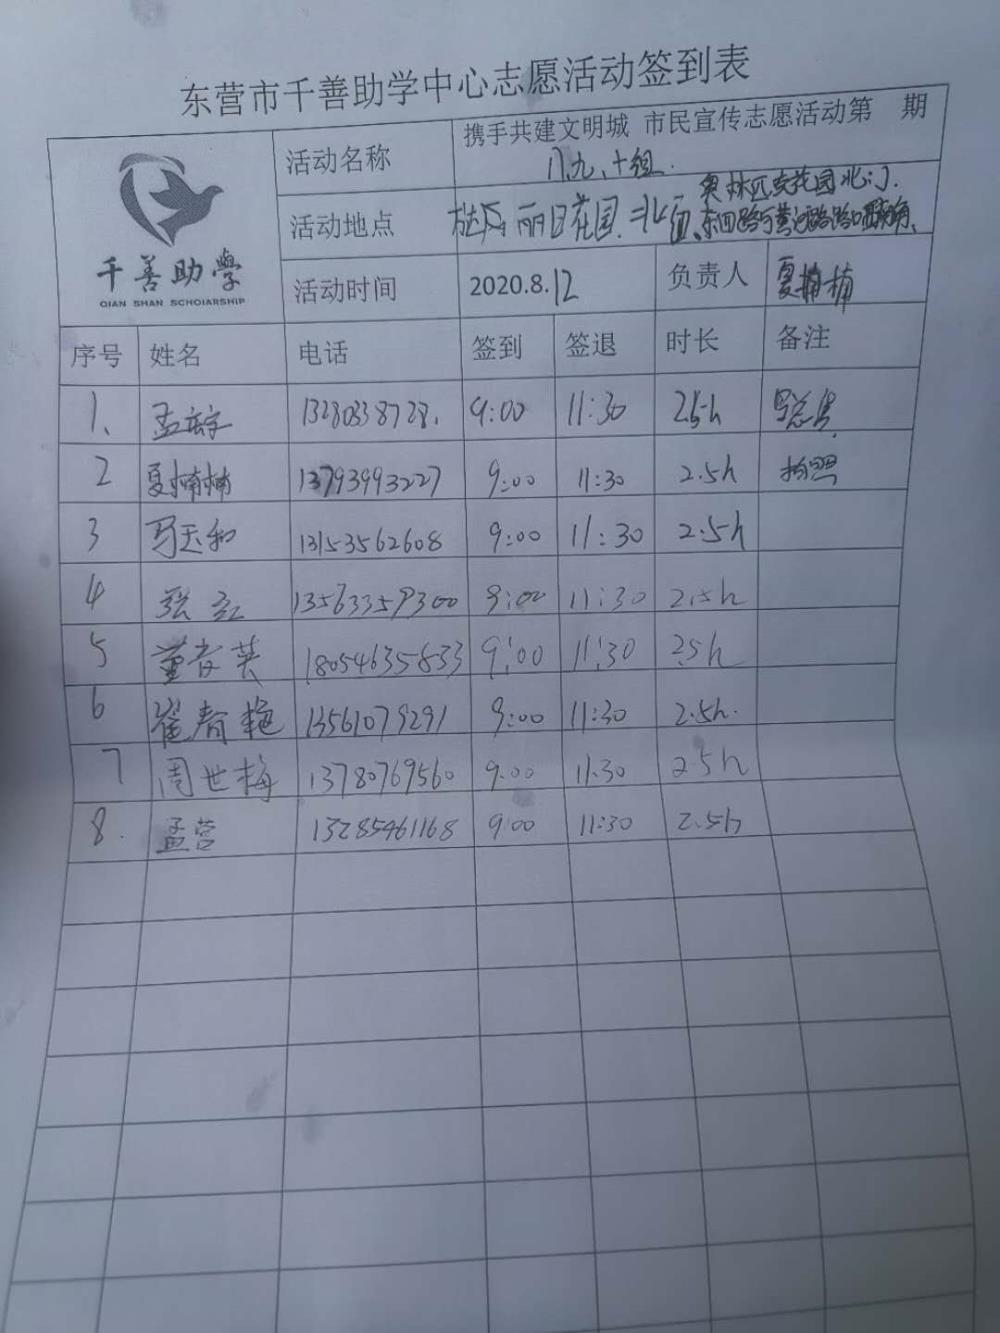 东营市千善助学中心志愿活动签到表
千善助學
QIAN SHAN SCHOlARSHIP
活动名称 携手共建文明城 市民宣传志愿活动第 期
八、九、十组.
活动地点 丽日花园.北 奥林匹克花园北门.
东四路 黄河路路口
活动时间 2020.8.12 负责人 夏楠楠
序号 姓名 电话 签到 签退 时长 备注
1、 孟 13280338728. 9:00 11:30 2.5h 写总结
2 夏楠楠 13793993227 9:00 11:30 2.5h 拍照
3 马天和 13153562608 9:00 11:30 2.5h
4 张红 13563359300 9:00 11:30 2.5h
5 董春英 18054635833 9:00 11:30 2.5h
6 崔春艳 13561079291 9:00 11:30 2.5h.
7 周世梅 13780769560 9:00 11:30 2.5h
8. 孟营 13285461168 9:00 11:30 2.5h